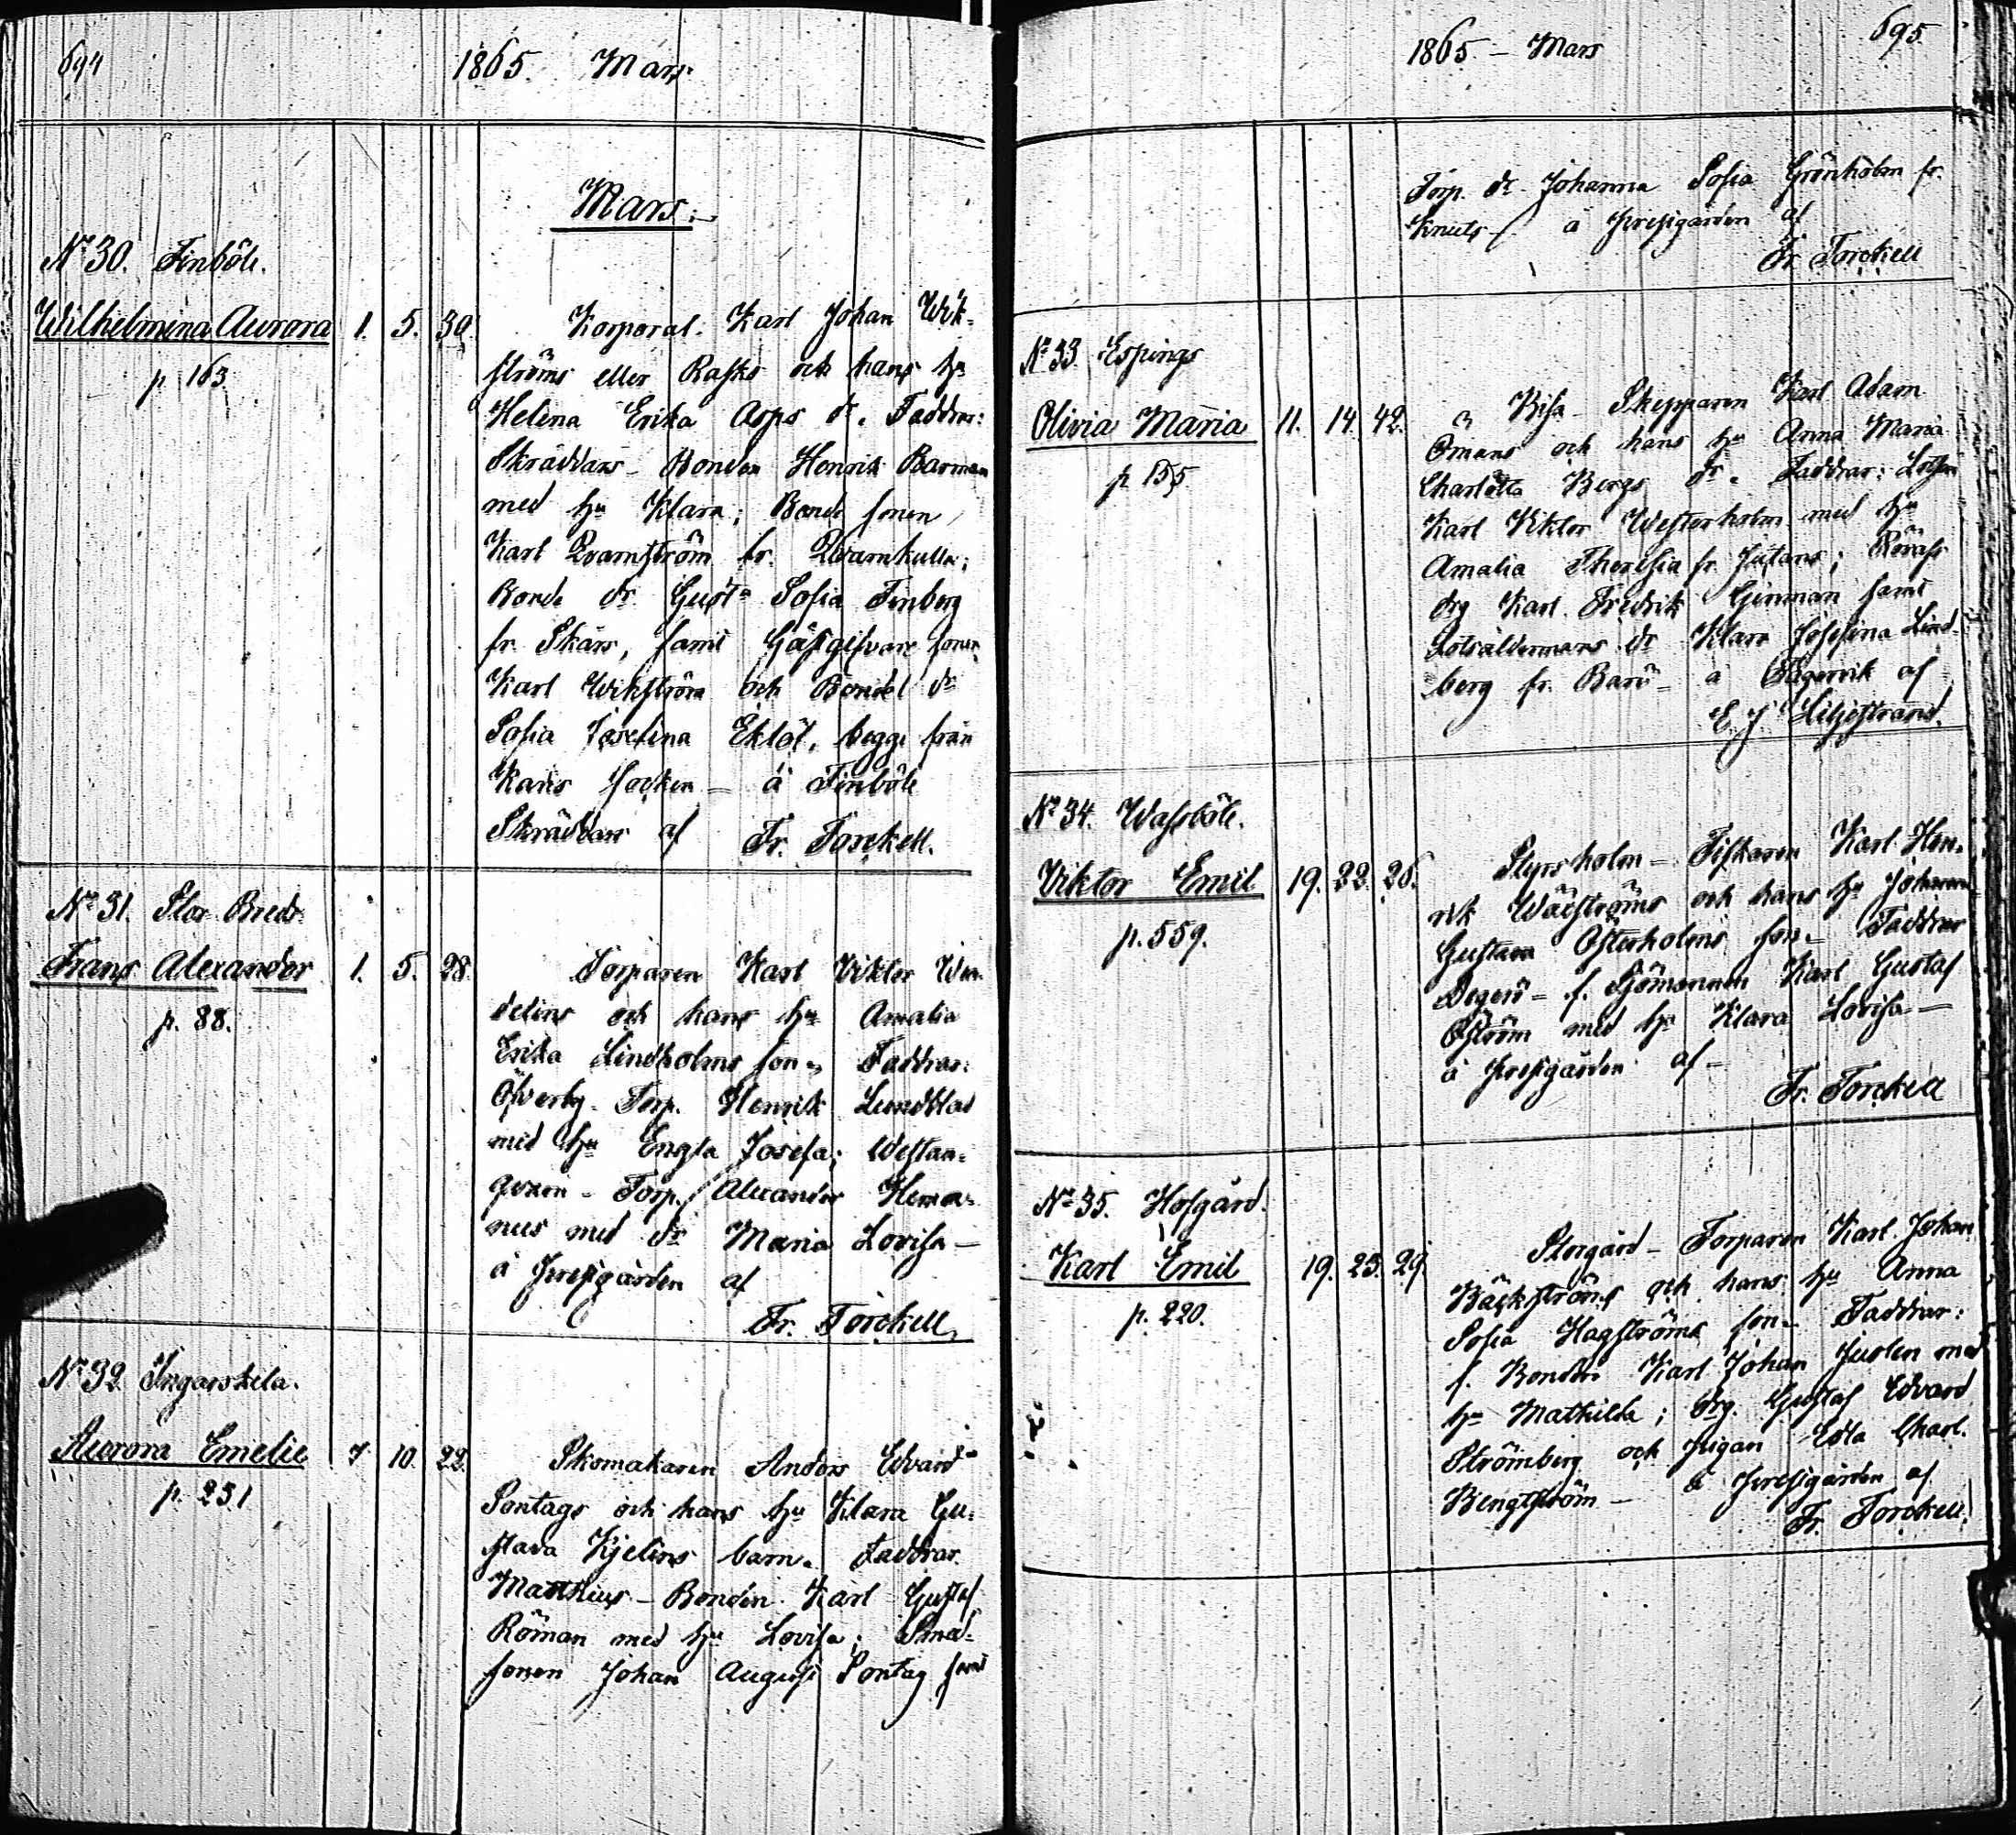 694
1865. Mars
Mars.
No 30. Finböle.
Wilhelmina Aurora 1. 5. 39.
p 163
Korporal Karl Johan Wik-
ströms eller Rasks och hans hu
Helena Erika Asps dr. Faddrar:
Skräddars Bonden Henrik Barman
med hu Klara; Bonde sonen
Karl Qvarnström fr. Qvarnkulla;
Bonde dr Gusta Sofia Finberg
fr. Skärs, samt Gäsgifvare sonen
Karl Wikström och Bonde dr
Sofia Joselina Eklöf, begge från
Karis socken - å Finböle
Skräddars af Fr. Torckell.
No 31. Stor Breds.
Frans Alexander 1. 5. 28.
p. 88.
Torparen Karl Viktor Wen-
delins och hans hu Amalia
Erika Lindholms son. Faddrar:
Öfverby Torp. Henrik Lundblad
med hu Engla Josefa; Westan-
qvarn - Torp. Alexander Hema-
nus med dr Maria Lovisa -
å Prestgården af
Fr. Torckell.
No 32. Ingarskila.
Aurora Emelie 7 10. 22.
p. 251
Skomakaren Anders Edvard
Sontags och hans hu Klara Gu-
stava Kjelins barn. Faddrar
Matthius - Bonden Karl Gustaf
Röman med hu Lovisa; Smed-
sonen Johan August Sontag samt
695
1865 - Mars
Torp. dr Johanna Sofia Grönholm fr.
Knuts - å Prestgården af
Fr. Torckell
No 33 Espings
Olivia Maria 11. 14. 42.
p 155
Bisa Skepparen Karl Adam
Ömans och hans hu Anna Maria
Charlotta Bergs dr. Faddrar: Lotsen
Karl Viktor Westerholm med hu
Amalia Theresia fr. Jutans;
drg Karl Fredrik Ginman samt
Lotsåldermans dr Klara Josefina Lind-
berg fr. Barö - å Fagervik af
E. J. Liljestrand.
No 34. Wassböle.
Viktor Emil 19. 22. 26.
p. 559.
Styrsholm - Fiskaren Karl Hen-
rik Wäeströms och hans hu Johanna
Gustava Österholms son - Faddrar
Degerö - f. Sjömannen Karl Gustaf
Öström med hu Klara Lovisa -
å Prestgården af -
Fr. Torckell
No 35. Hofgård.
Karl Emil 19. 23. 29.
p. 220.
Storgård - Torparen Karl Johan
Bäckströms och hans hu Anna
Sofia Hagströms son - Faddrar:
f. Bonden Karl Johan Juslen med
hu Mathilda; drg. Gustaf Edvard
Strömberg och pigan Edla Charl.
Bengtström - å Prestgården af
Fr. Torckell.